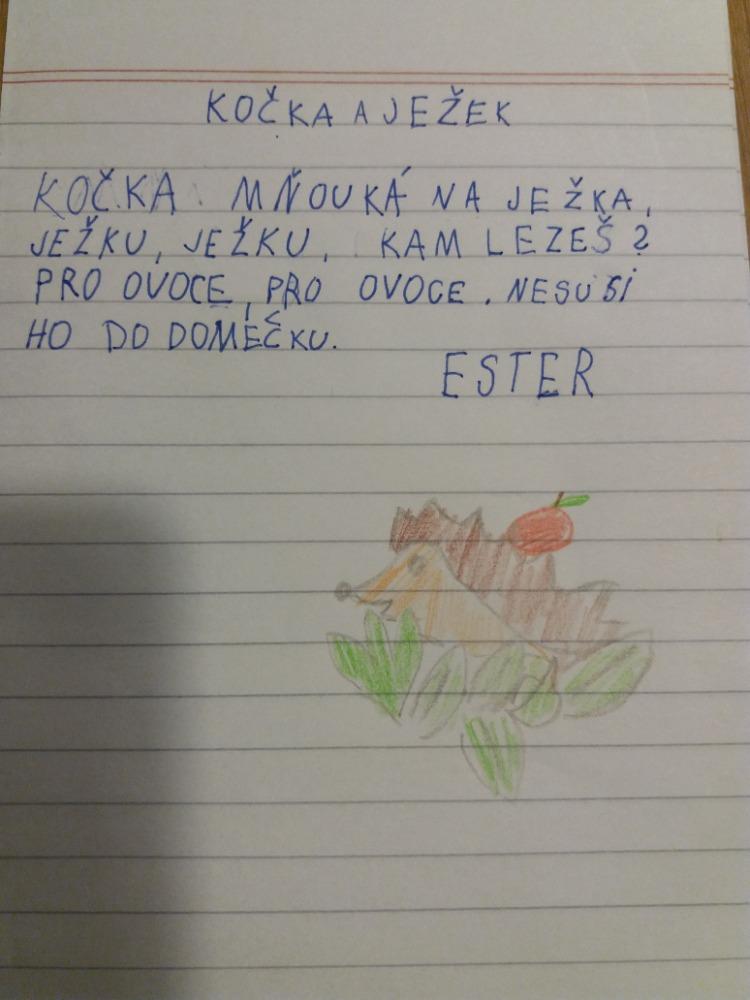 KOČKA A JEŽEK
KOČKA MŇOUKÁ NA JEŽKA,
JEŽKU, JEŽKU, KAM LEZEŠ?
PRO OVOCE, PRO OVOCE. NESU SI
HO DO DOMEČKU.
ESTER